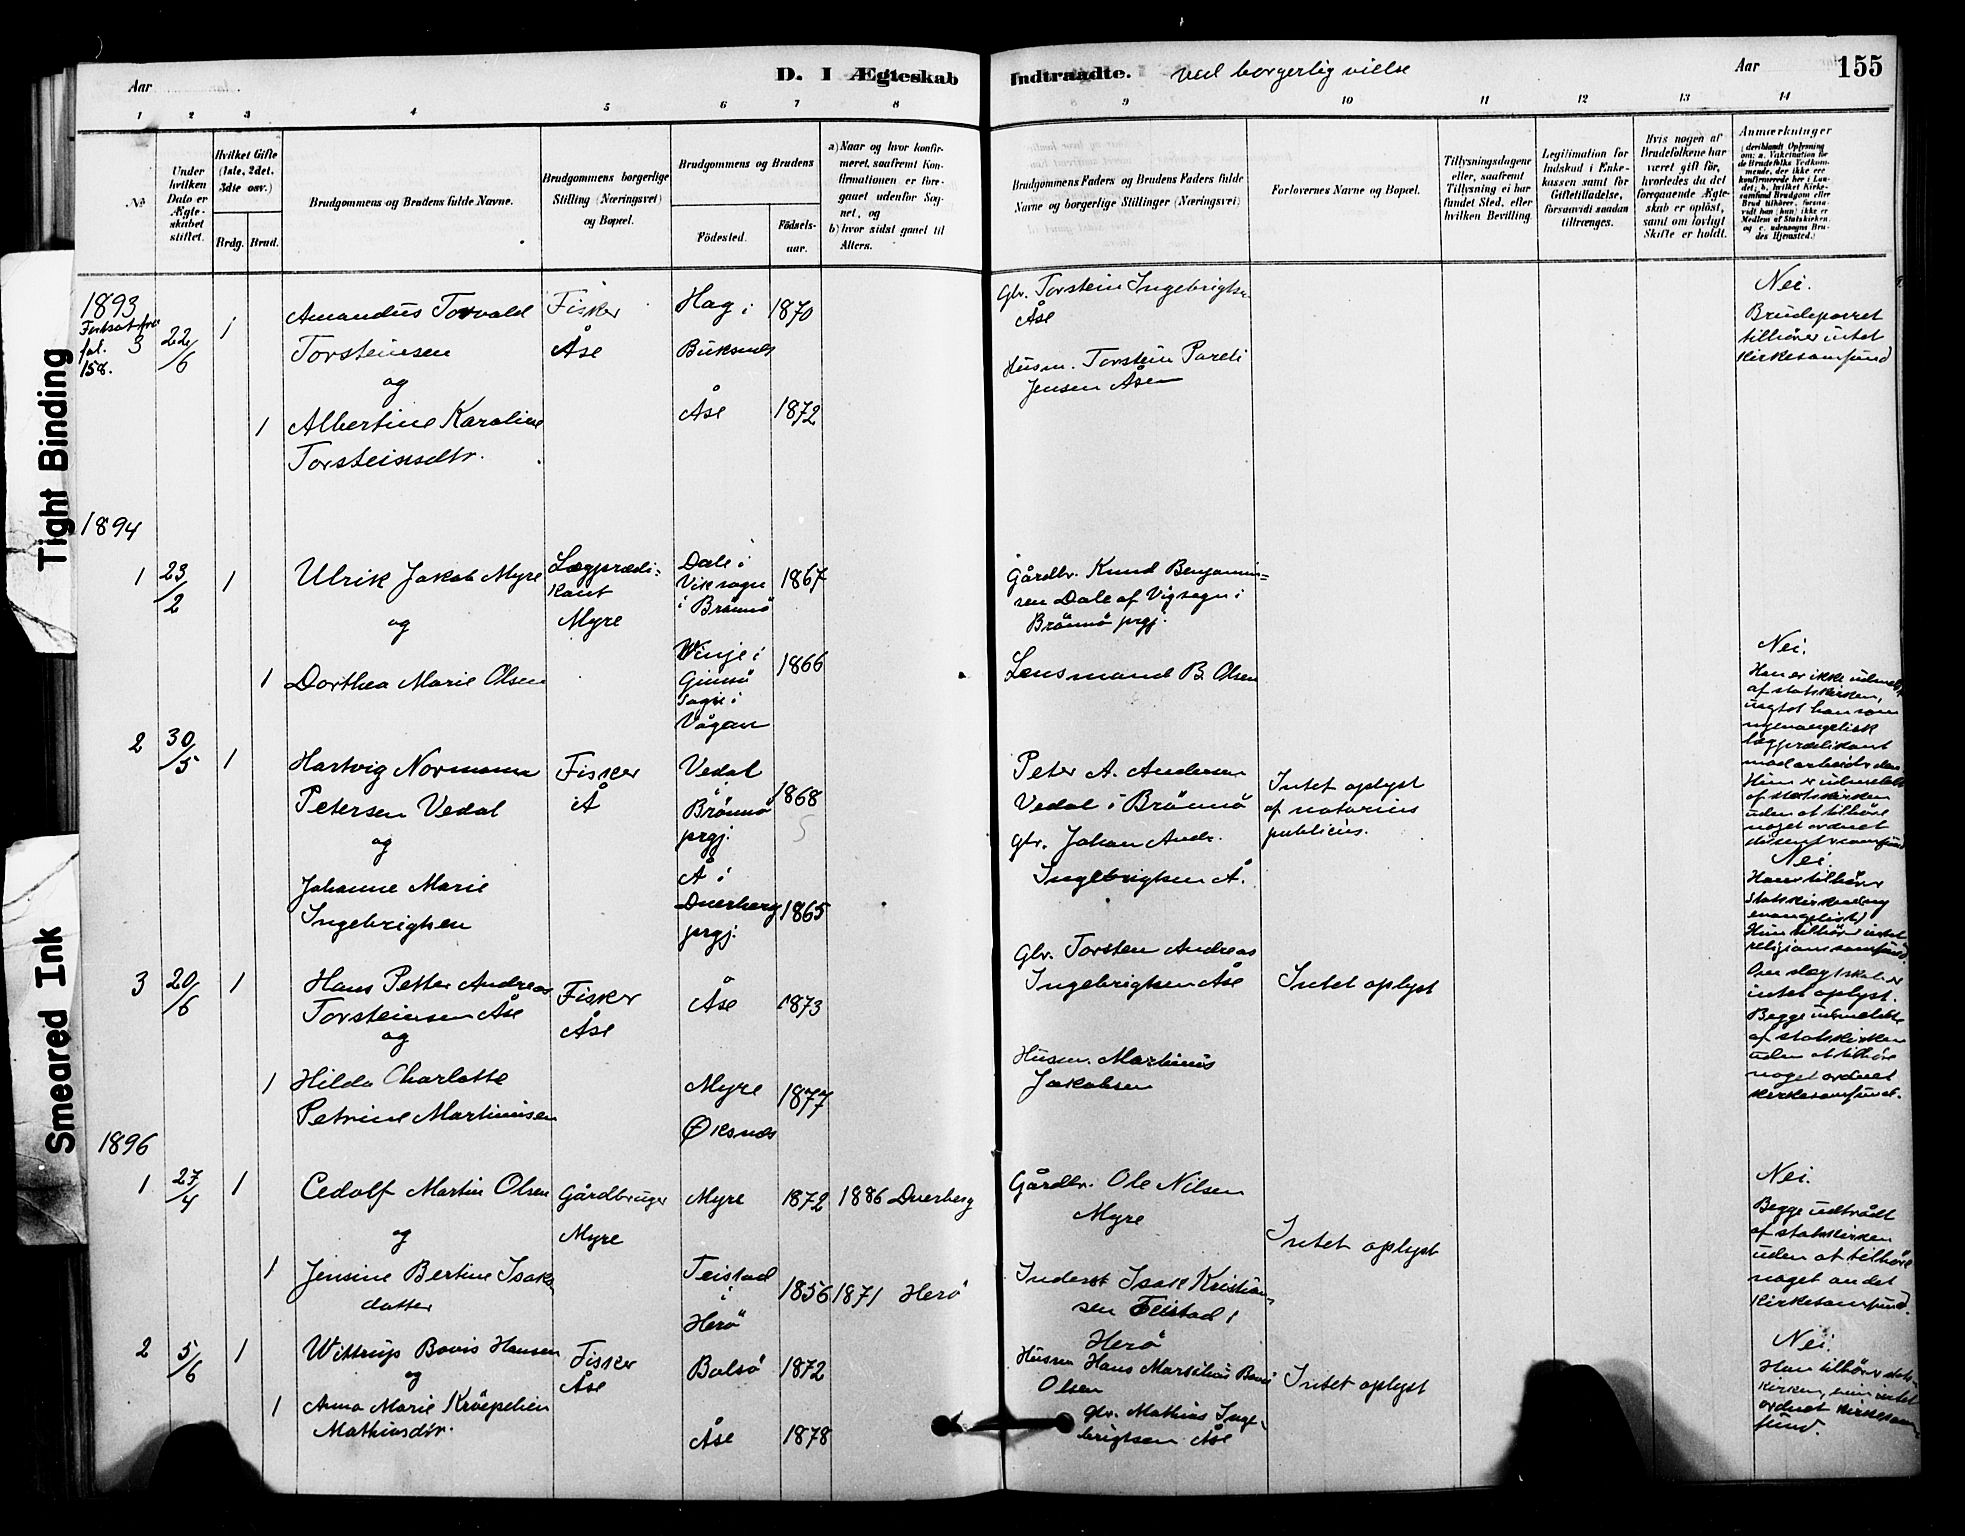 Tight Binding
Smeared Ink
D. I Ægteskab Indtraadte. ved borgerlig vielse
Aar
Aar
155
1 2 3 4 5 6 7 8 9 10 11 12 13 14
No
Under hvilken Dato er Ægteskabet stiftet.
Hvilket Gifte (1ste, 2det, 3die osv.)
Brdg. Brud.
Brudgommens og Brudens fulde Navne.
Brudgommens borgerlige Stilling (Næringsvei) og Bopæl.
Brudgommens og Brudens
Födested.
Födsels-aar.
a) Naar og hvor konfirmeret, saafremt Konfirmationen er foregaaet udenfor Sognet, og
b) hvor sidst gaaet til Alters.
Brudgommens Faders og Brudens Faders fulde Navne og borgerlige Stillinger (Næringsvei)
Forlovernes Navne og Bopæl.
Tillysningsdagene eller, saafremt Tillysning ei har fundet Sted, efter hvilken Bevilling.
Legitimation for Indskud i Enkekassen samt for Giftetilladelse, forsaavidt saadan tiltrænges.
Hvis nogen af Brudefolkene har været gift för, hvorledes da det foregaaende Ægteskab er oplöst, samt om lovligt Skifte er holdt.
Anmærkninger
1893
Fortsat fra
fol. 3
158.
22/6
1
Amandus Torvald
Torsteinsen
og
1 Albertine Karoline
Torsteinsdtr.
Fisker
Åse
Hag i
Buksnes
1870
Åse 1872
Gbr. Torstein Ingebrigtsn
Åse
Husm. Torstein Pareli
Jensen Åsen
Nei.
Brudeparret
tilhører intet
kirkesamfund
1894
1 23/2 1
Ulrik Jakob Myre
og
1 Dorthea Marie Olsen
Lægprædi-
kant
Myre
Dale i
Viksogn
i Brønnø
1867
Winje i
Gimsø
Sogn i
Vågan
1866
Gårdbr. Knud Benjamin-
sen Dale af Vigsogn i
Brønnø prgj.
Lensmand B. Olsen
Nei.
Han er ikke udmeldt
af statskirken,
uagtet han som
nyevangelisk
lægprædikant
modarbeider den
Hun er udmeldt
af statskirken
uden at tilhøre
noget ordnet
2 30/5 1
Hartvig Normann
Petersen Vedal
og
Johanne Marie
Ingebrigtsen
Fisker
i Å
Vedal
i
Brønnø
prgj.
1868
5
Å i
Dverberg
prgj.
1865
Peter A. Andersen
Vedal i Brønnø
Gbr. Johan Andr.
Ingebrigtsen Å.
Intet oplyst
af notarius
publicus.
Nei.
Han tilhører
statskirken (ny
evangelist)
Hun tilhører intet
religionssamfund.
3 20/6 1
Hans Petter Andreas
Torsteinsen Åse
og
1 Hilda Charlotte
Petrine Martinusen
Fisker
Åse
Åse 1873
Myre
Øksnes
1877
Gbr. Torsten Andreas
Ingebrigtsen Åse
Husm. Martinus
Jakobsen
Intet oplyst
Om slægtskab er
intet oplyst.
Begge udmeldte
af statskirken
uden at tilhøre
noget ordnet
kirkesamfund.
1896
1 27/4 1
Cedolf Martin Olsen
og
1 Jensine Bertine Isaks
datter
Gårdbruger
Myre
Myre 1872 1886 Dverberg
Teistad
i
Herø
1856 1871 Herø
Gårdbr. Ole Nilsen
Myre
Inderst Isak Kristian-
sen Teistad i
Herø
Intet oplyst
Nei.
Begge udtrådt
af statskirken
uden at tilhøre
noget andet
kirkesamfund.
2 5/6 1
Wittrup Bovis Hansen
og
1 Anna Marie Krøepelien
Mathiasdtr.
Fisker
Åse
Bolsø 1872
Åse 1878
Husm Hans Martilius
Olsen
Gbr. Mathias Inge-
brigtsen Åse
Intet oplyst
Nei.
Han tilhører stats-
kirken, hun intet
ordnet kirkesam-
fund.